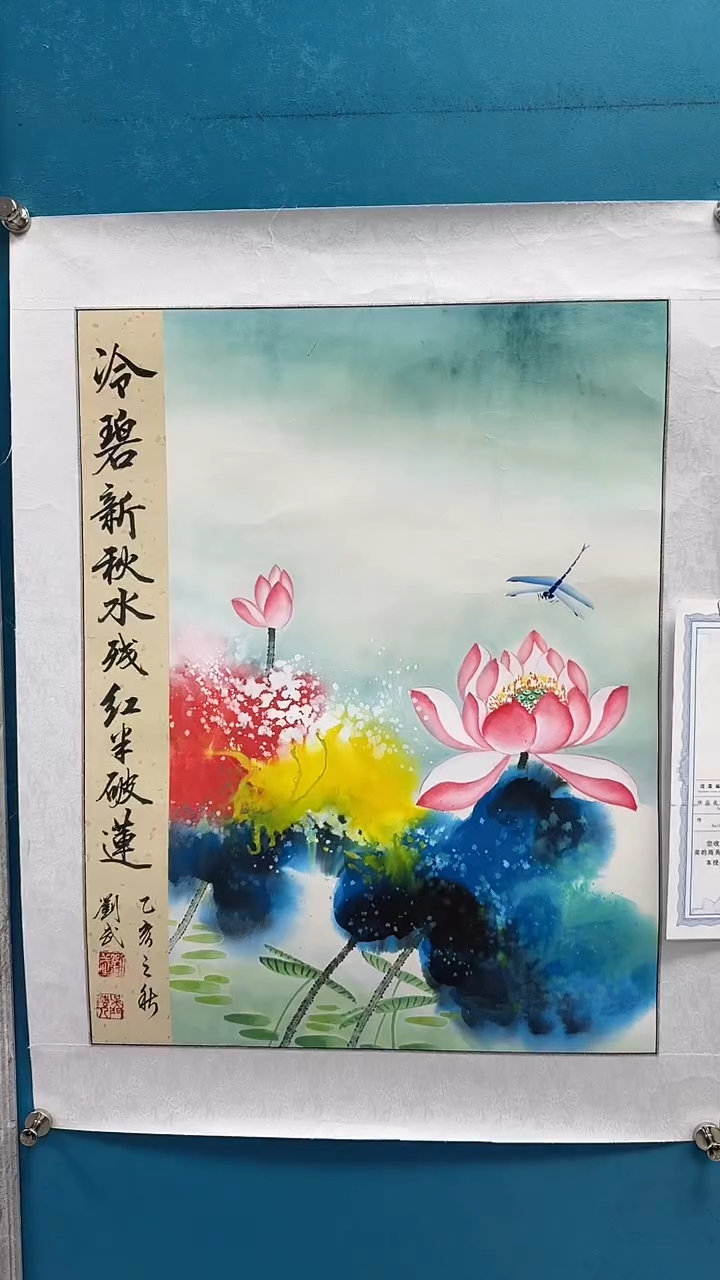 冷碧新秋水残红半破莲
乙亥之秋
劉武